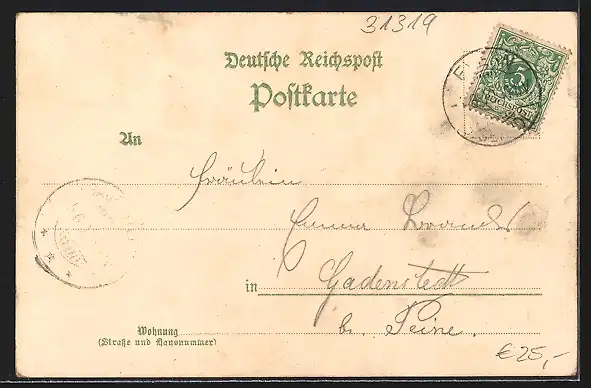 31319
Deutsche Reichspost
Postkarte
5
REICHSPOST
An
Fräulein
Emma Brandes
in Gadenstedt
b. Peine.
Wohnung
(Straße und Hausnummer)
€25,-